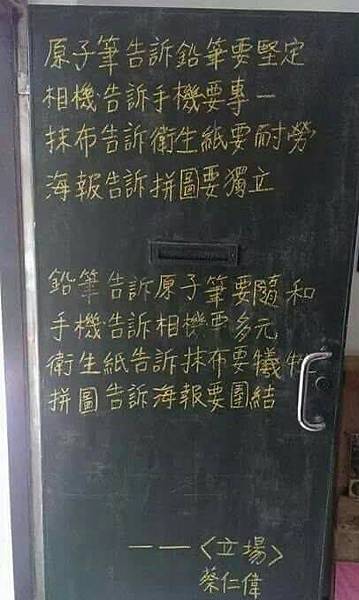 原子筆告訴鉛筆要堅定
相機告訴手機要專一
抹布告訴衛生紙要耐勞
海報告訴拼圖要獨立
鉛筆告訴原子筆要隨和
手機告訴相機要多元
衛生紙告訴抹布要犧牲
拼圖告訴海報要團結
——〈立場〉
蔡仁偉